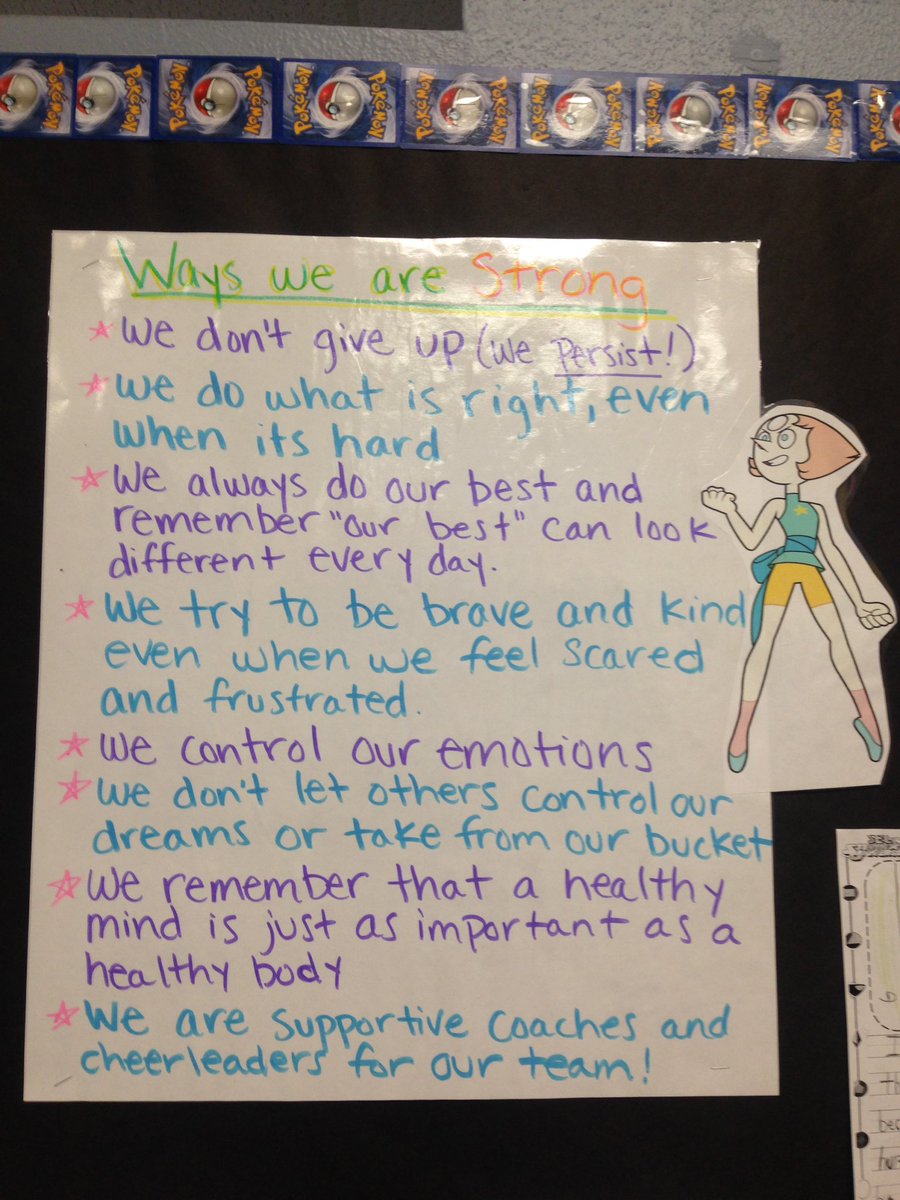 Pokémon Pokémon Pokémon Pokémon Pokémon Pokémon Pokémon Pokémon Pokémon Pokémon Pokémon Pokémon Pokémon Pokémon Pokémon
Ways we are Strong
We don't give up (we persist!)
We do what is right, even
when its hard
We always do our best and
remember "our best" can look
different every day.
We try to be brave and kind
even when we feel scared
and frustrated.
We control our emotions
We don't let others control our
dreams or take from our bucket
We remember that a healthy
mind is just as important as a
healthy body
We are supportive coaches and
cheerleaders for our team!